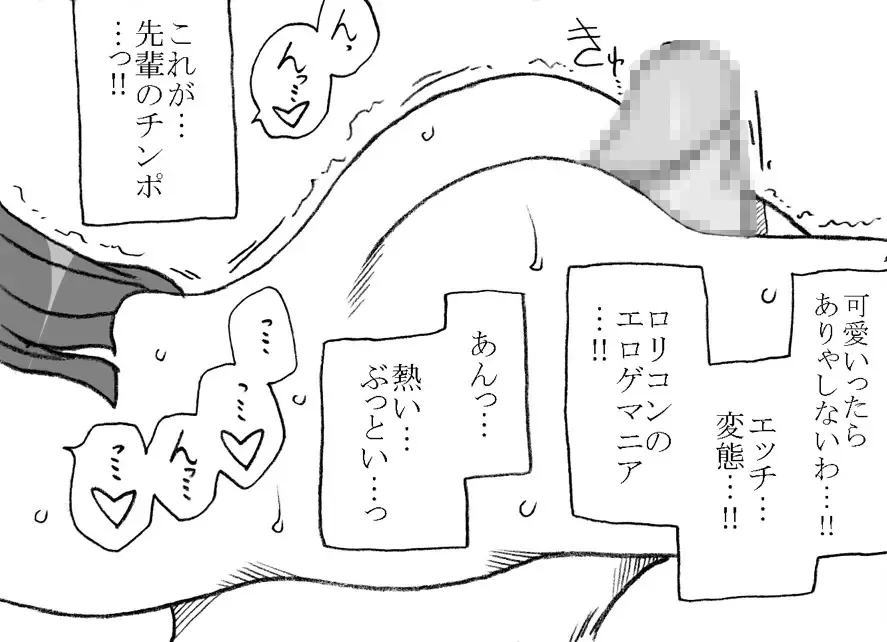 可愛いったら
ありゃしないわ…!!
エッチ…
変態…!!
ロリコンの
エロゲマニア
…!!
きゅっ
あんっ…
熱い…
ぶっとい…っ
んっ
んっ…♡
これが…
先輩のチンポ
…っ!!
っ…
っ…♡
んっ…
っ…♡